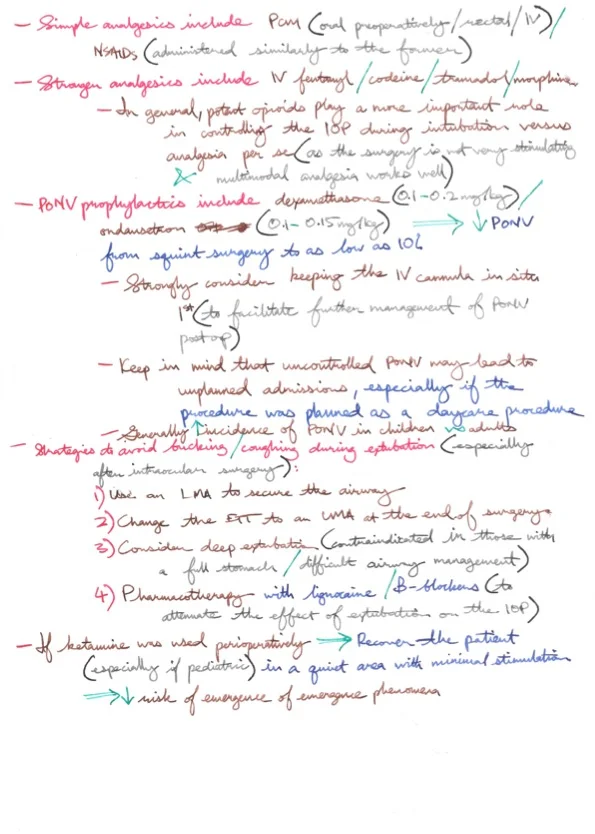 - Simple analgesics include PCM (oral preoperatively/rectal/IV)/
NSAIDs (administered similarly to the former)
- Stronger analgesics include IV fentanyl/codeine/tramadol/morphine
- In general, potent opioids play a more important role
in controlling the IOP during intubation versus
analgesia per se (as the surgery is not very stimulating
& multimodal analgesia works well)
- PONV prophylactics include dexamethasone (0.1-0.2mg/kg)/
ondansetron (0.1-0.15mg/kg) ⇒ ↓ PONV
from squint surgery to as low as 10%
- Strongly consider keeping the IV cannula in situ
1st (to facilitate further management of PONV
post op)
- Keep in mind that uncontrolled PONV may lead to
unplanned admissions, especially if the
procedure was planned as a daycare procedure
- Generally ↑ incidence of PONV in children vs adults
- Strategies to avoid bucking/coughing during extubation (especially
after intraocular surgery):
1) Use an LMA to secure the airway
2) Change the ETT to an LMA at the end of surgery
3) Consider deep extubation (contraindicated in those with
a full stomach/difficult airway management)
4) Pharmacotherapy with lignocaine/B-blockers (to
attenuate the effect of extubation on the IOP)
- If ketamine was used perioperatively ⇒ Recover the patient
(especially if pediatric) in a quiet area with minimal stimulation
⇒ ↓ risk of emergence of emergence phenomena